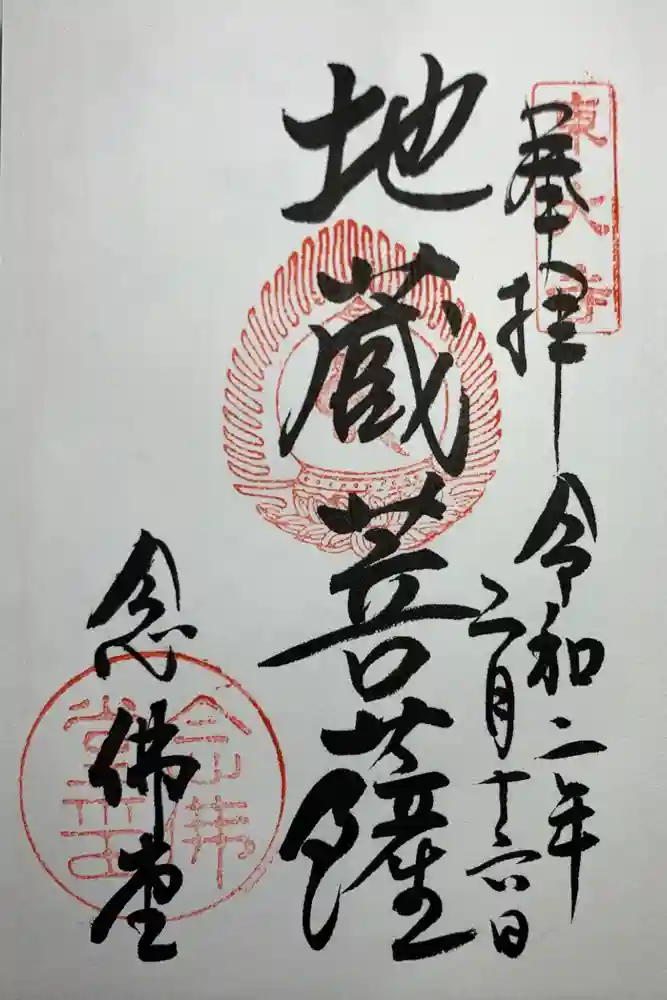 東大寺
奉拝
令和二年
三月十六日
地蔵菩薩
念佛堂
念佛
堂印